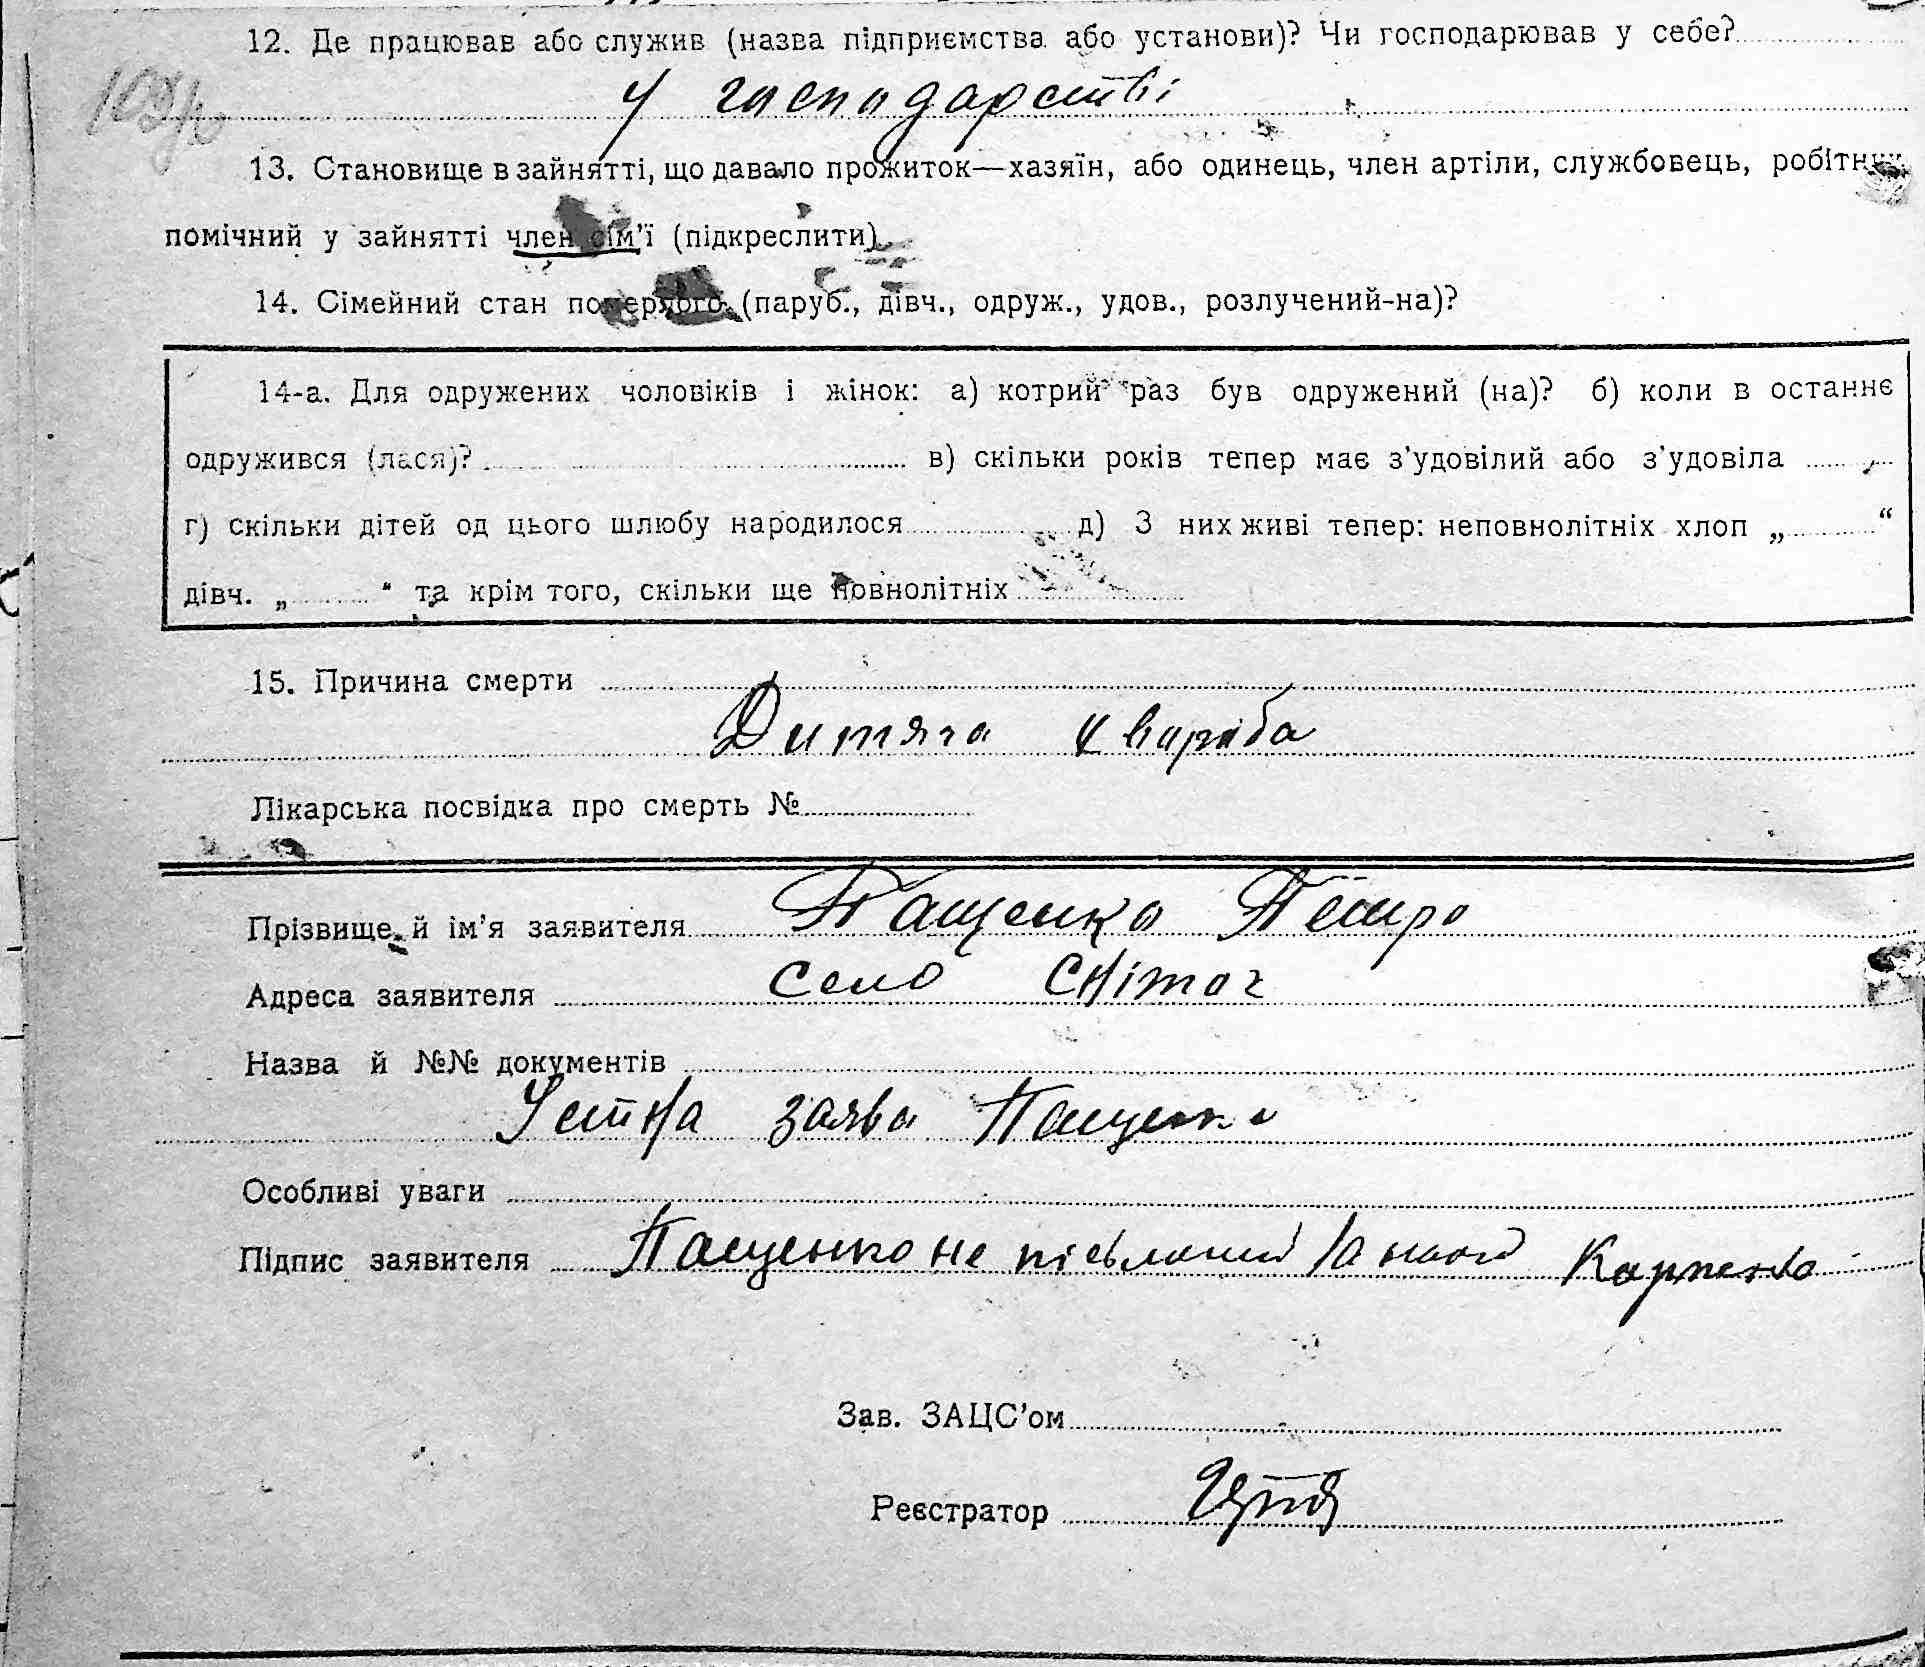 12. Де працював або служив (назва підприємства або установи)? Чи господарював у себе?
У господарстві
13. Становище в зайнятті, що давало прожиток—хазяїн, або одинець, член артіли, службовець, робітник
помічний у зайнятті член сім'ї (підкреслити)
14. Сімейний стан померлого (паруб., дівч., одруж., удов., розлучений-на)?
14-а. Для одружених чоловіків і жінок: а) котрий раз був одружений (на)? б) коли в останнє
одружився (лася)? в) скільки років тепер має з'удовілий або з'удовіла
г) скільки дітей од цього шлюбу народилося д) З них живі тепер: неповнолітніх хлоп „ “
дівч. „ “ та крім того, скільки ще повнолітніх
15. Причина смерти
Дитяча хвороба
Лікарська посвідка про смерть №
Прізвище й ім'я заявителя Пащенко Петро
Адреса заявителя село Світоч
Назва й №№ документів
Устна заява Пащенка
Особливі уваги
Підпис заявителя Пащенко не письмений за нього Карпенко
Зав. ЗАЦС'ом
Реєстратор